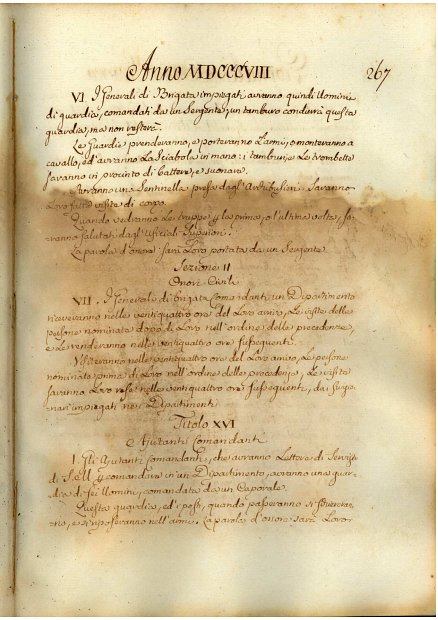 Anno MDCCCVIII
267
VI. I Generali di Brigata impiegati avranno quindici Uomini
di guardia, comandati da un Sergente; un tamburo condurrà questa
guardia, ma non resterà.
Le Guardie prenderanno, e porteranno L'armi, o monteranno a
cavallo, ed avranno La Sciabola in mano: i tamburi, e Le trombette
saranno in procinto di battere, e suonare.
Avranno una Sentinella presa dagl'Archibusieri. Saranno
Loro fatte visite di corpo.
Quando vedranno Le truppe per La prima, o L'ultima volta, sa-
ranno salutati dagl'ufficiali Superiori.
La parola d'onore sarà Loro portata da un Sergente.
Sezione II
Onori Civili
VII. I Generali di Brigata Comandanti un Dipartimento
riceveranno nelle ventiquattro ore del Loro arrivo, Le visite delle
persone nominate dopo di Loro nell'ordine delle precedenze,
e Le renderanno nelle ventiquattro ore susseguenti.
Visiteranno nelle ventiquattro ore del Loro arrivo, Le persone
nominate prima di Loro nell'ordine delle precedenze, Le visite
saranno Loro rese nelle ventiquattro ore susseguenti, dai
impiegati nei Dipartimenti
Titolo XVI
Ajutanti Comandanti
I. Gli Ajutanti Comandanti, che avranno Lettere di Servizio
di comandare in un Dipartimento, avranno una guar-
dia di sei Uomini, comandata da un Caporale.
Questa guardia, ed i posti, quando passeranno si
ranno, e si riposeranno nell'armi. La parola d'onore sarà Loro